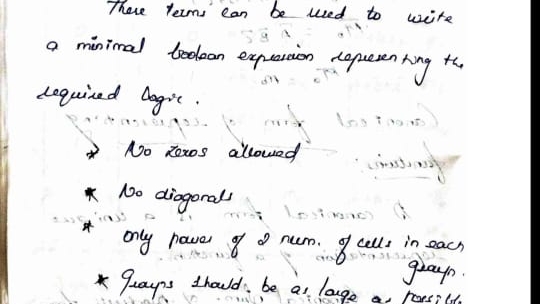 These terms can be used to write
a minimal boolean expression representing the
required logic.
* No zeros allowed
* No diagonals
* only power of 2 num. of cells in each
group.
* Groups should be as large as possible